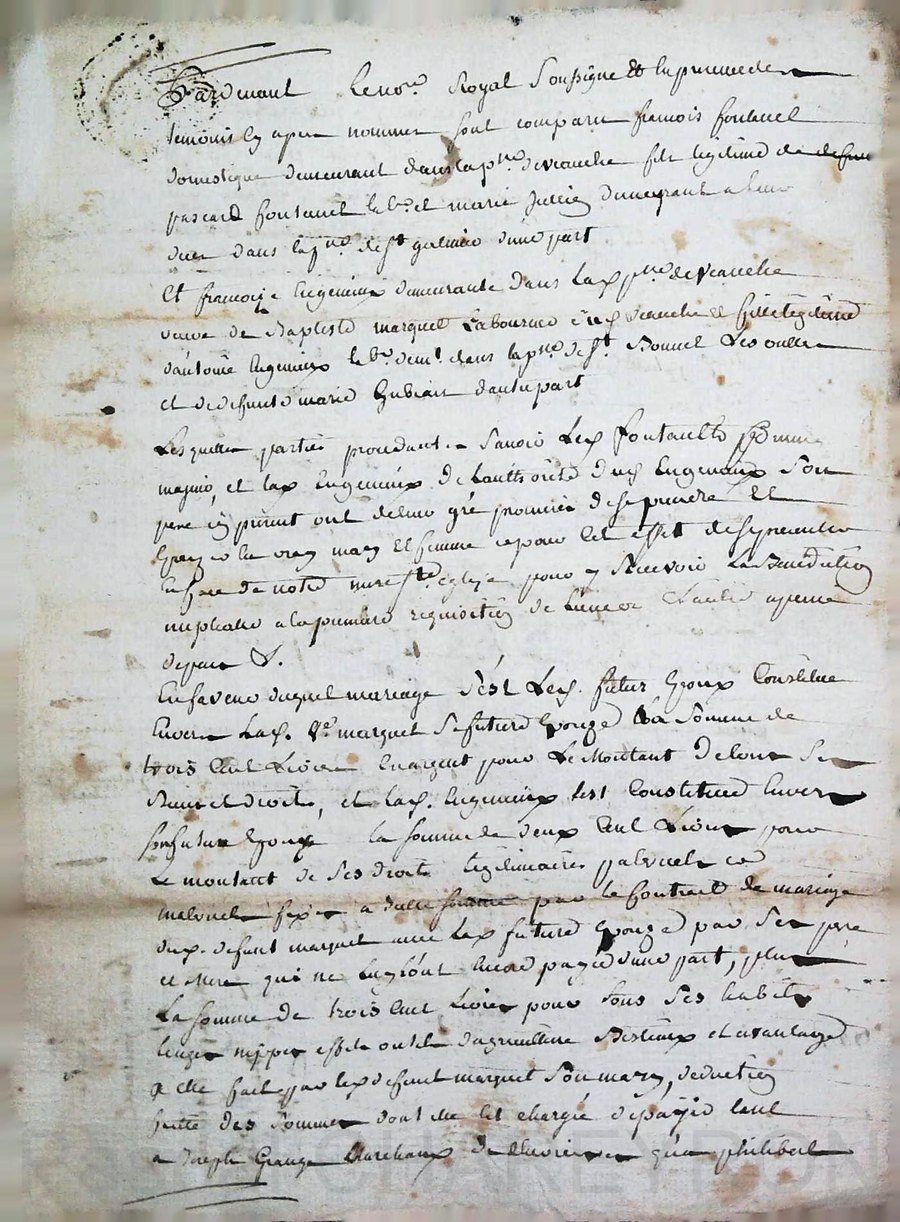 Pardevant Le no.re Royal Soussigne Et en presence des
temoins cy apres nommes sont comparu francois fontanel
domestique demeurant dans la p.sse de veauche fils legitime de defunt
pascard fontanel lab.r et marie Jullien demeurant a
dans la p.sse de St galmier d'une part
Et francoise Eugenieux demeurante dans La p.sse de veauche
veuve de Baptiste marquet Laboureur veauche et fille legitime
d'antoine Eugenieux lab.r dem.t dans la p.sse de St Bonnet Les oulles
et de defunte marie d'autre part
Lesquelles parties procedant Savoir Led. fontanel comme
majeur, et lad. Eugenieux De Lauthorité dud. Eugenieux Son
pere cy present ont de leur gré promis de se prendre Et
Epouzer en vray mary Et femme et pour cet effet de se presenter
En face de notre mere Ste eglize pour y Recevoir La Benediction
nuptialle a la premiere requisition de L'une ou L'autre a peine
depens &.
En faveur duquel mariage s'est Led. futur Epoux Constitué
Envers Lad. Ve. marquet Sa future Epouze La Somme de
trois Cent Livres En argent pour Le Montant De tous Ses
Biens et droits, et lad. Eugenieux s'est Constituée Envers
son futur Epoux la somme de deux Cent Livres pour
Le montant de Ses droits legitimaires paternels et
maternels fixés a telle somme par le Contrat de mariage
dud. defunt marquet avec Lad. future Epouze par Ses pere
et Mere qui ne Luy ont Encore payée d'une part, plus
La somme de trois Cent Livres pour tous Ses habits
linges nippes effets outils d'agriculture Bestiaux et avantages
a elle fait par led. defunt marquet Son mary, deduction
faitte des Sommes dont elle Est chargée de payer tant
a Joseph Grange Marechaux De qu'a philibert